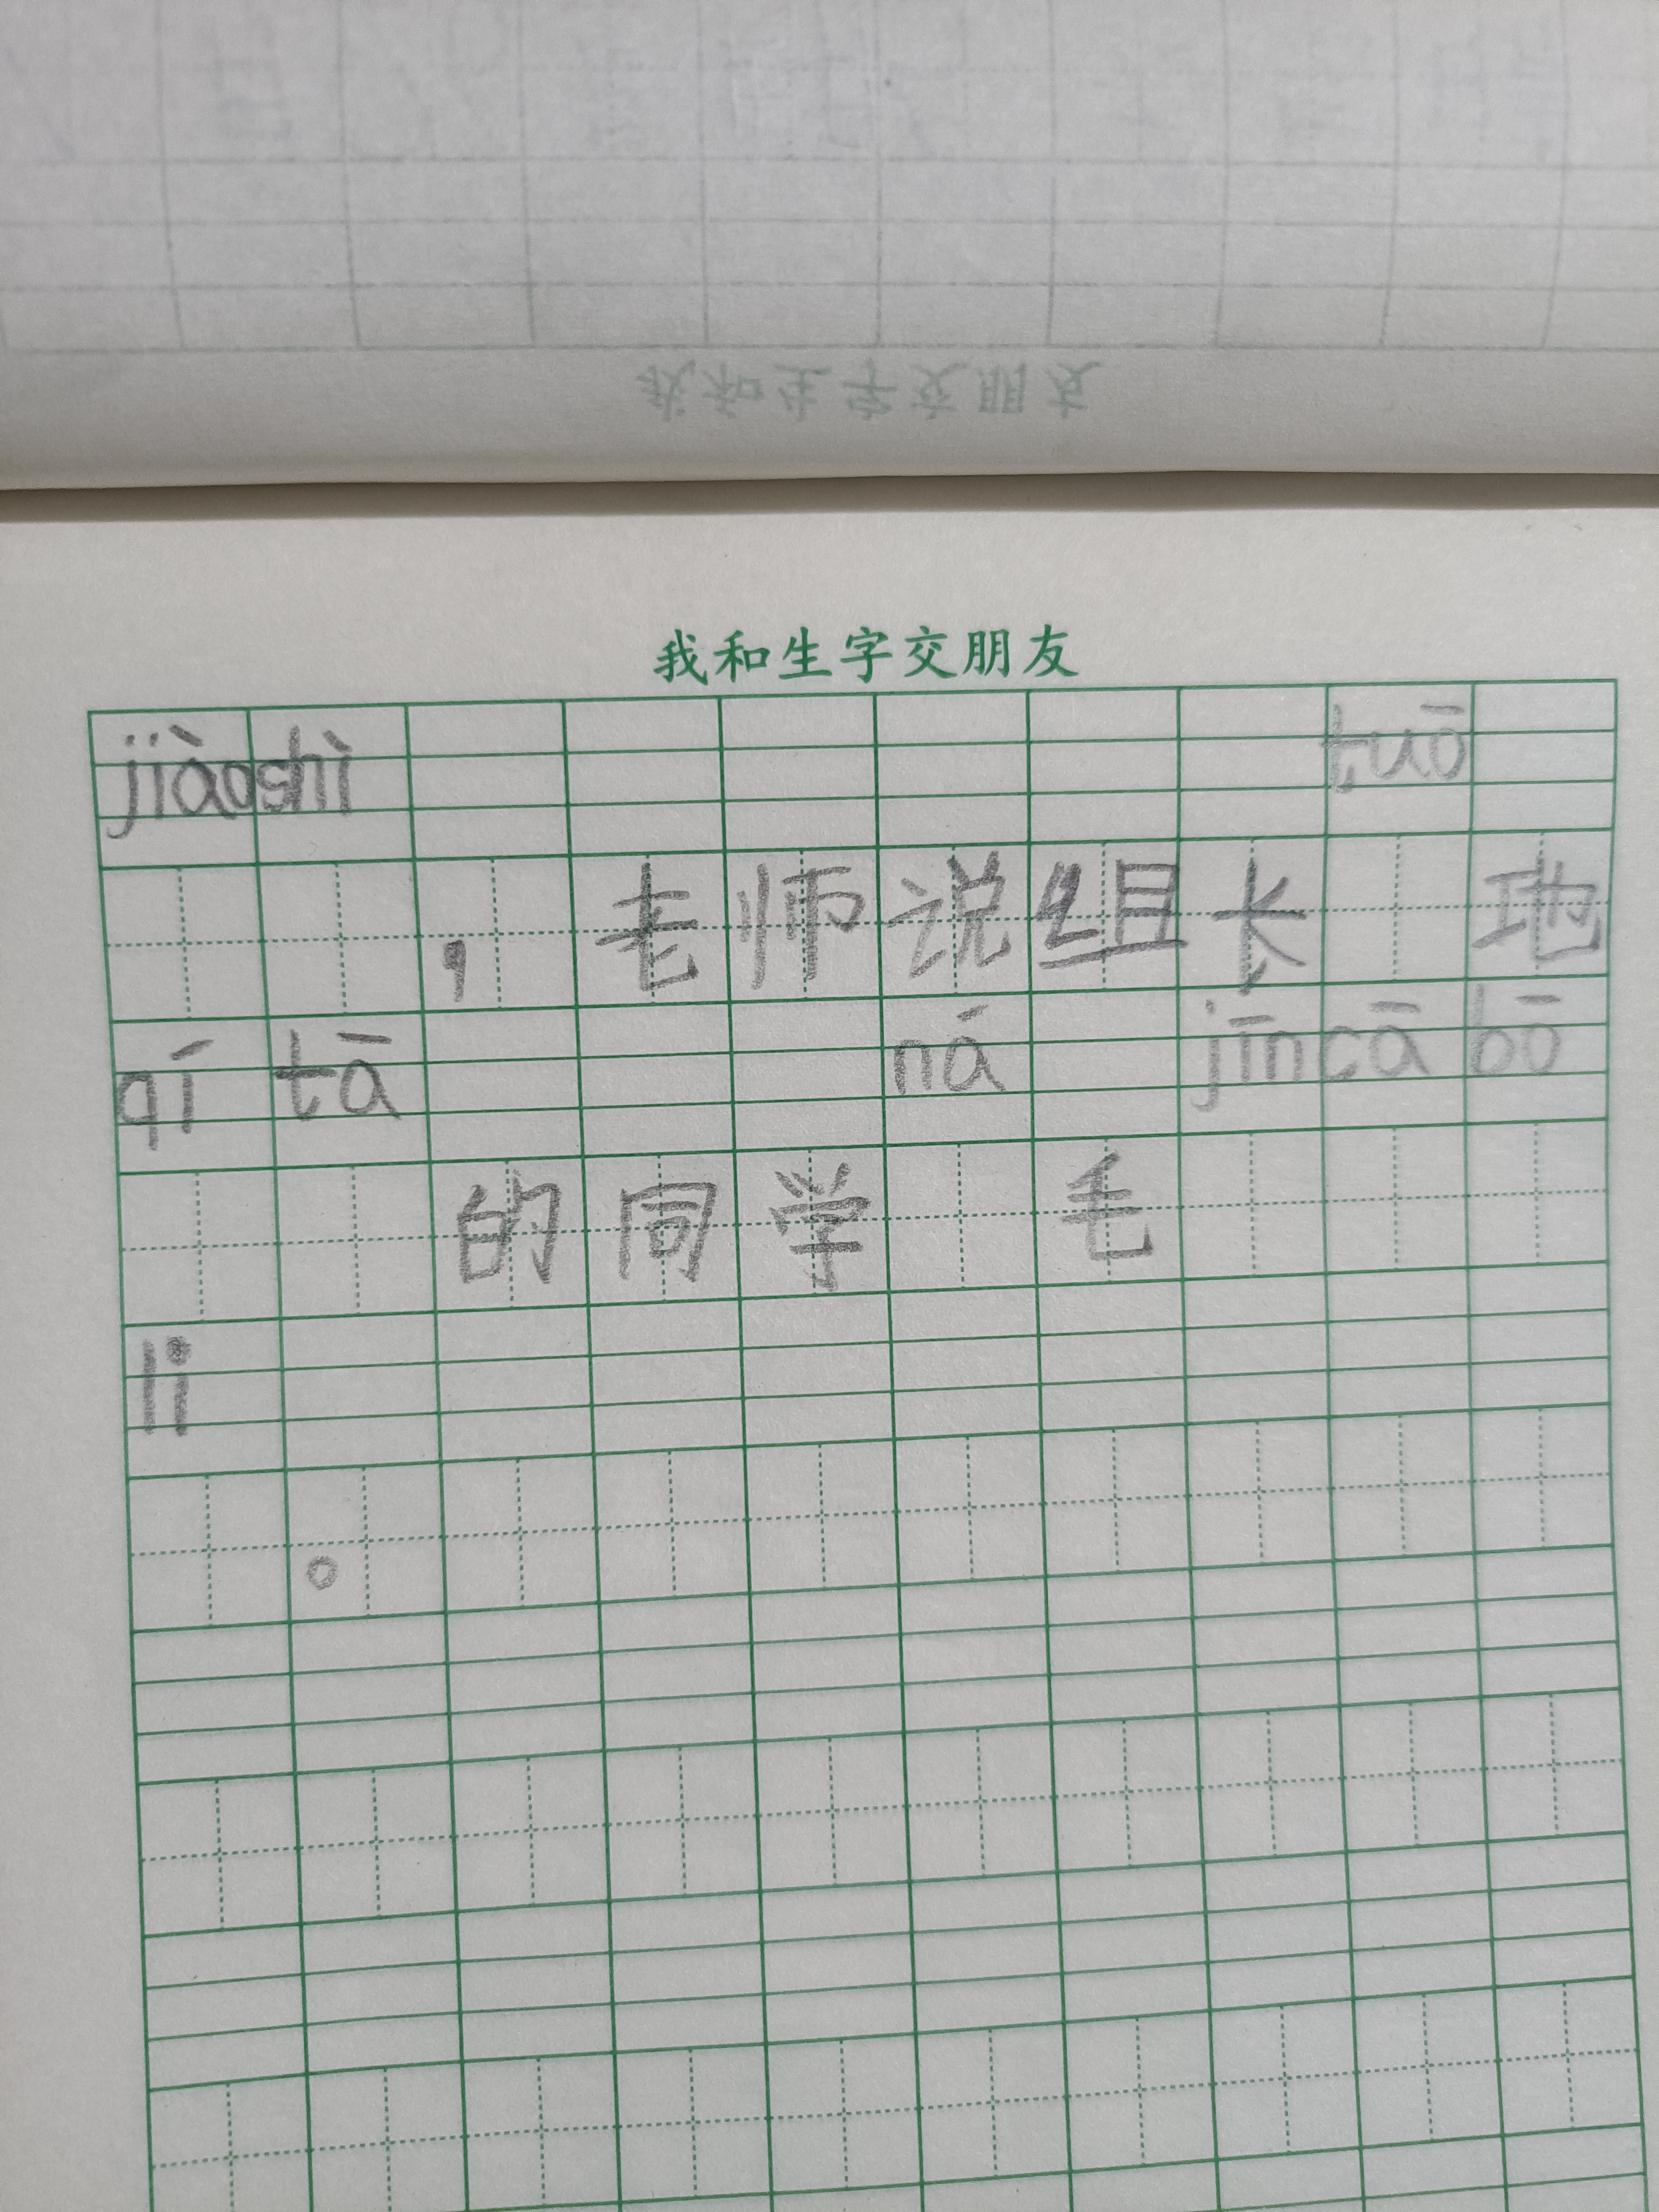 我和生字交朋友
我和生字交朋友
jiàoshì tuō
，老师说组长 地
qí tā ná jīncā bō
的同学 毛
li
。